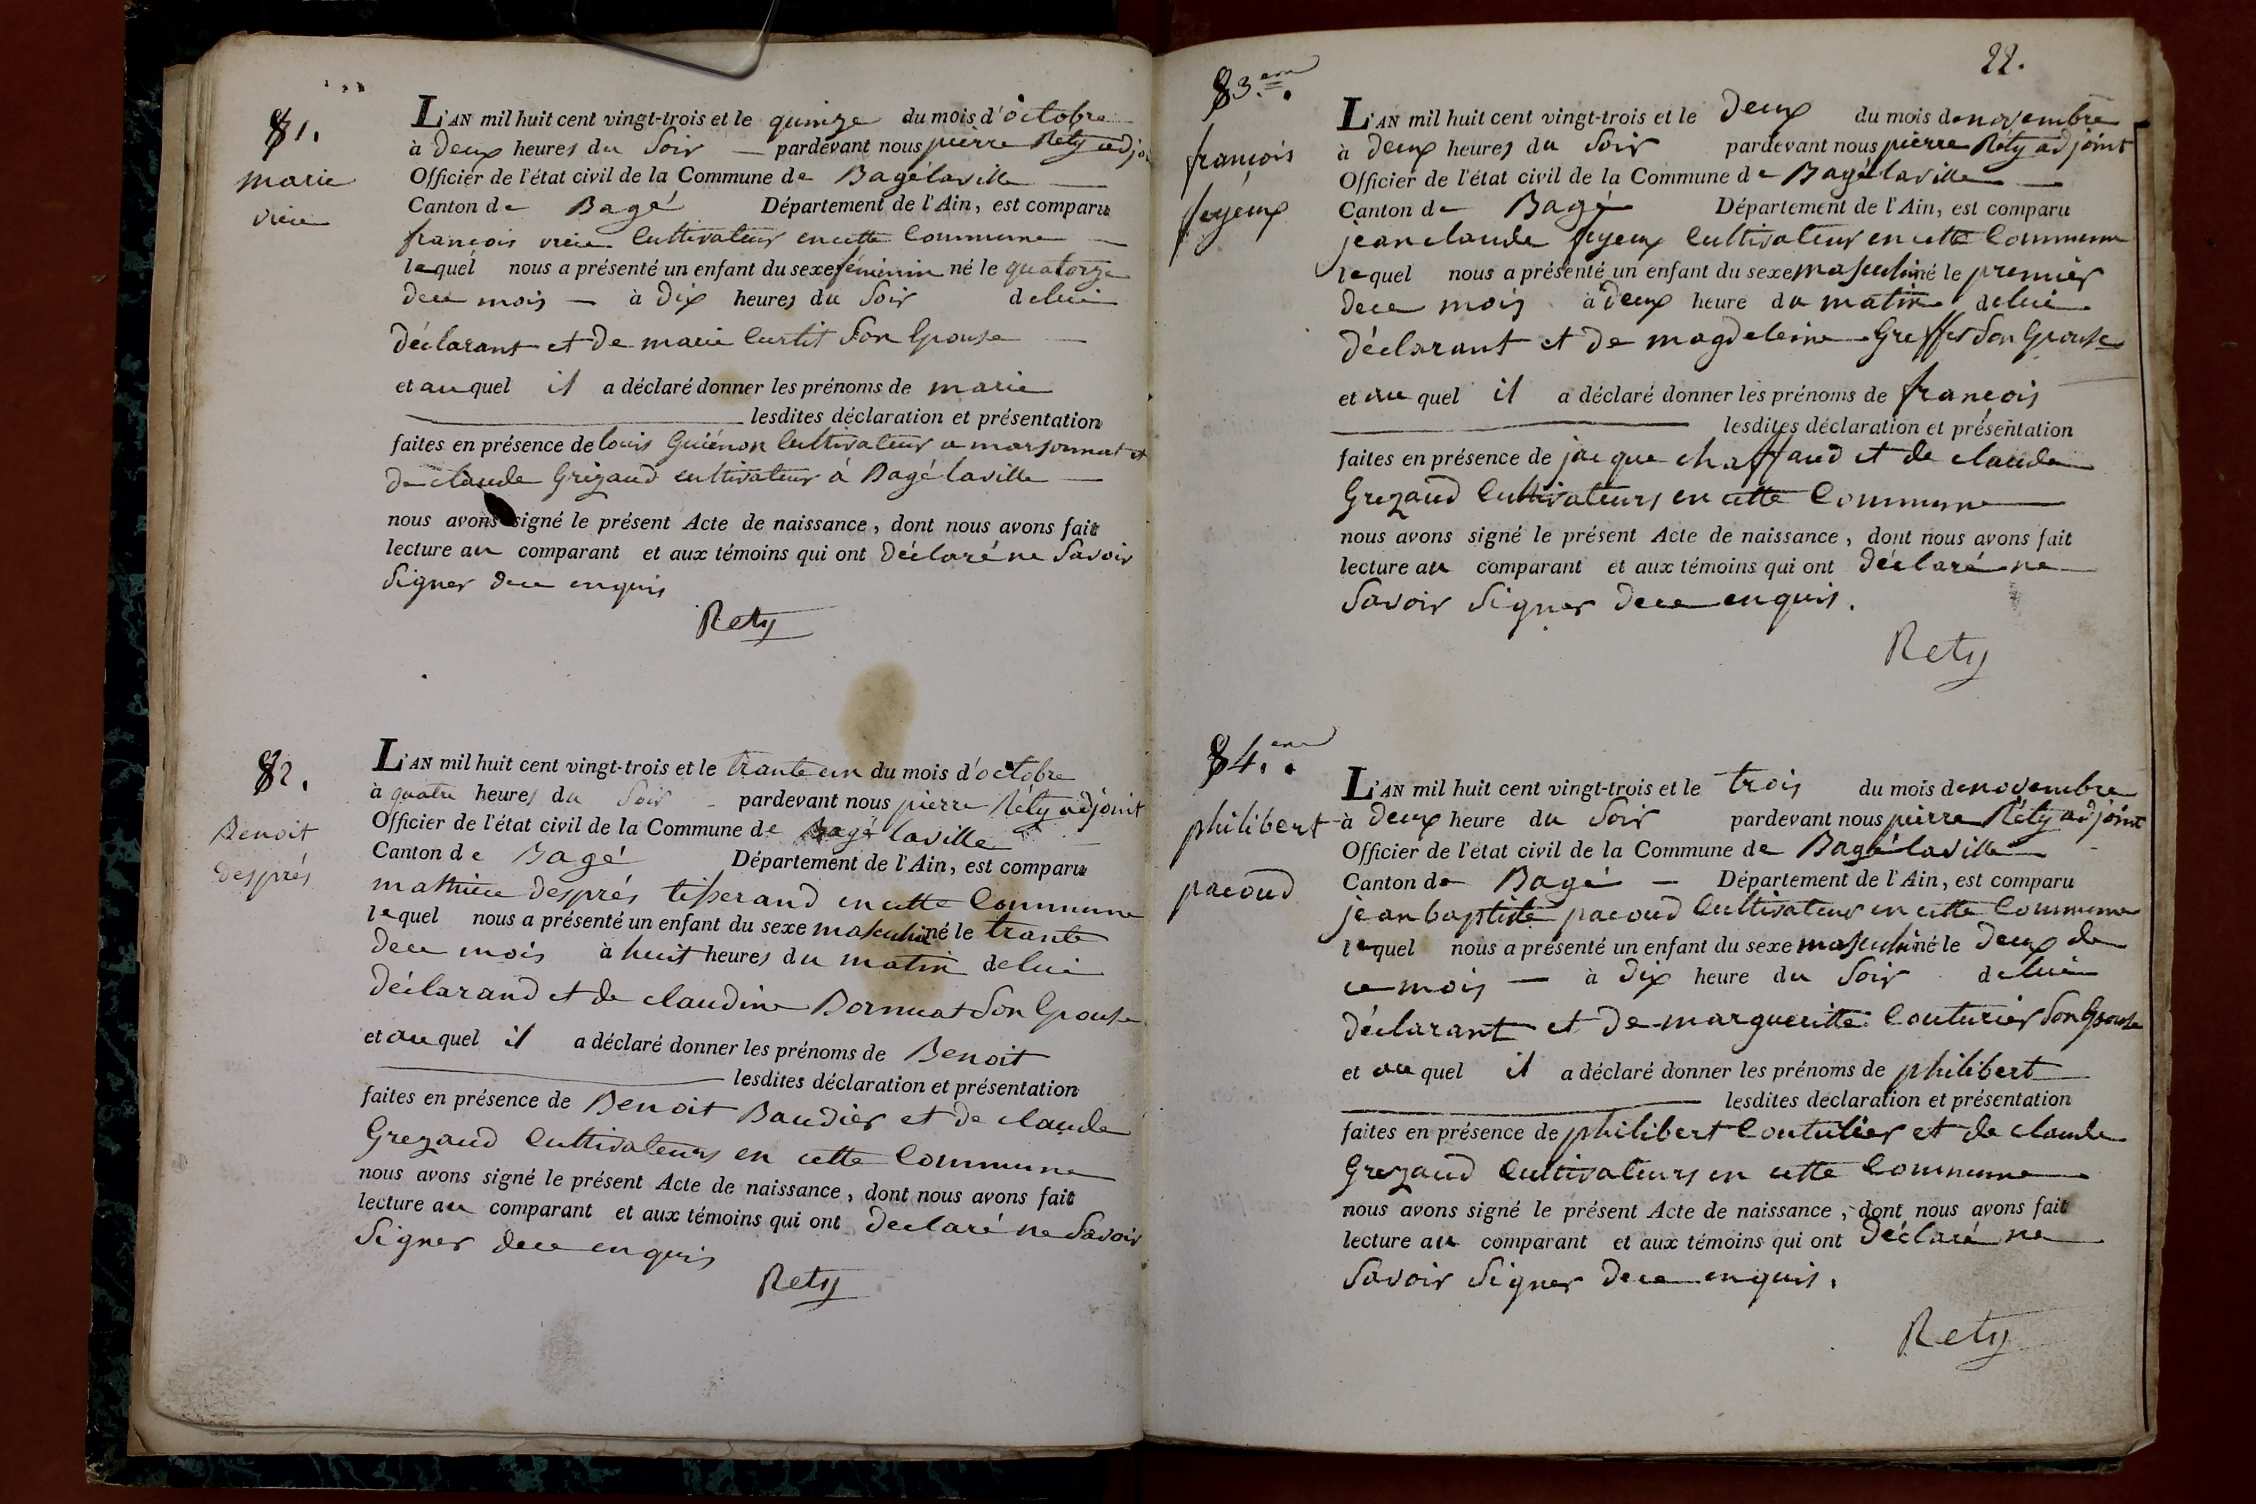 81.
marie
vieie
L'AN mil huit cent vingt-trois et le quinze du mois d'octobre
à deux heures du soir — pardevant nous pierre Réty adjoi
Officier de l'état civil de la Commune de Bagélaville
Canton de Bagé Département de l'Ain, est comparu
françois vieie Cultivateur en cette Commune
lequel nous a présenté un enfant du sexe féminin né le quatorze
de ce mois — à dix heures du soir de lui
déclarant et de marie Curtit son Epouse
et au quel il a déclaré donner les prénoms de marie
lesdites déclaration et présentation
faites en présence de louis Guiénon Cultivateur a marsonnat et
de claude Grezaud cultivateur à Bagélaville
nous avons signé le présent Acte de naissance, dont nous avons fait
lecture au comparant et aux témoins qui ont déclaré ne savoir
signer de ce enquis
Rety
82.
Benoit
després
L'AN mil huit cent vingt-trois et le trante un du mois d'octobre
à quatre heures du soir pardevant nous pierre Réty adjoint
Officier de l'état civil de la Commune de Bagé laville
Canton de Bagé Département de l'Ain, est comparu
mathieu després tisserand en cette Commune
lequel nous a présenté un enfant du sexe masculin né le trante
de ce mois à huit heures du matin de lui
déclarand et de claudine Bornuat son Epouse
et au quel il a déclaré donner les prénoms de Benoit
lesdites déclaration et présentation
faites en présence de Benoit Baudier et de claude
Grezaud Cultivateurs en cette Commune
nous avons signé le présent Acte de naissance, dont nous avons fait
lecture au comparant et aux témoins qui ont declaré ne savoir
signer de ce enquis
Rety
22.
83.eme
françois
feyeux
L'AN mil huit cent vingt-trois et le deux du mois de novembre
à deux heures du soir pardevant nous pierre Réty adjoint
Officier de l'état civil de la Commune de Bagélaville
Canton de Bagé Département de l'Ain, est comparu
jean claude feyeux Cultivateur en cette Commune
lequel nous a présenté un enfant du sexe masculin né le premier
de ce mois à deux heure du matin de lui
déclarant et de magdeleine Greffet son Epouse
et au quel il a déclaré donner les prénoms de françois
lesdites déclaration et présentation
faites en présence de jacque chaffaud et de claude
Grezaud Cultivateurs en cette Commune
nous avons signé le présent Acte de naissance, dont nous avons fait
lecture au comparant et aux témoins qui ont déclaré ne
savoir signer de ce enquis.
Rety
84.eme
philibert
pacoud
L'AN mil huit cent vingt-trois et le trois du mois de novembre
à deux heure du soir pardevant nous pierre Réty adjoint
Officier de l'état civil de la Commune de Bagélaville
Canton de Bagé — Département de l'Ain, est comparu
jean baptiste pacoud Cultivateur en cette Commune
lequel nous a présenté un enfant du sexe masculin né le deux de
ce mois — à dix heure du soir de lui
déclarant et de margueritte Couturier son Epouse
et au quel il a déclaré donner les prénoms de philibert
lesdites déclaration et présentation
faites en présence de philibert Coutulier et de claude
Grezaud Cultivateurs en cette Commune
nous avons signé le présent Acte de naissance, dont nous avons fait
lecture au comparant et aux témoins qui ont déclaré ne
savoir signer de ce enquis.
Rety